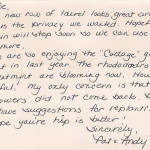 se,
new row of laurel looks great an
us the privacy we wanted. Hope
in will stop soon so we can use
more.
e are so enjoying the "Cottage" g
ut in last year. The rhododendro
are blooming now. How
ful! my only concern is tha
owers did not come back
have suggestions for replan
ope you're hip is better!
Sincerely,
Pat & Andy